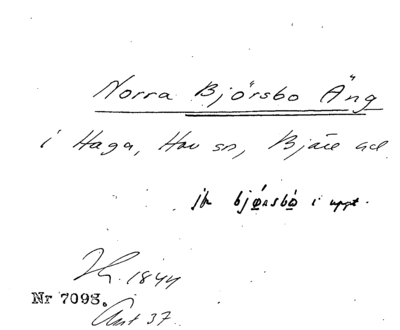 Norra Björsbo Äng
i Haga, Hov sn, Bjäre hd
jfr bjǫ́rsbo̱ i uppt.
1844
Nr 7098.
Ant 37.